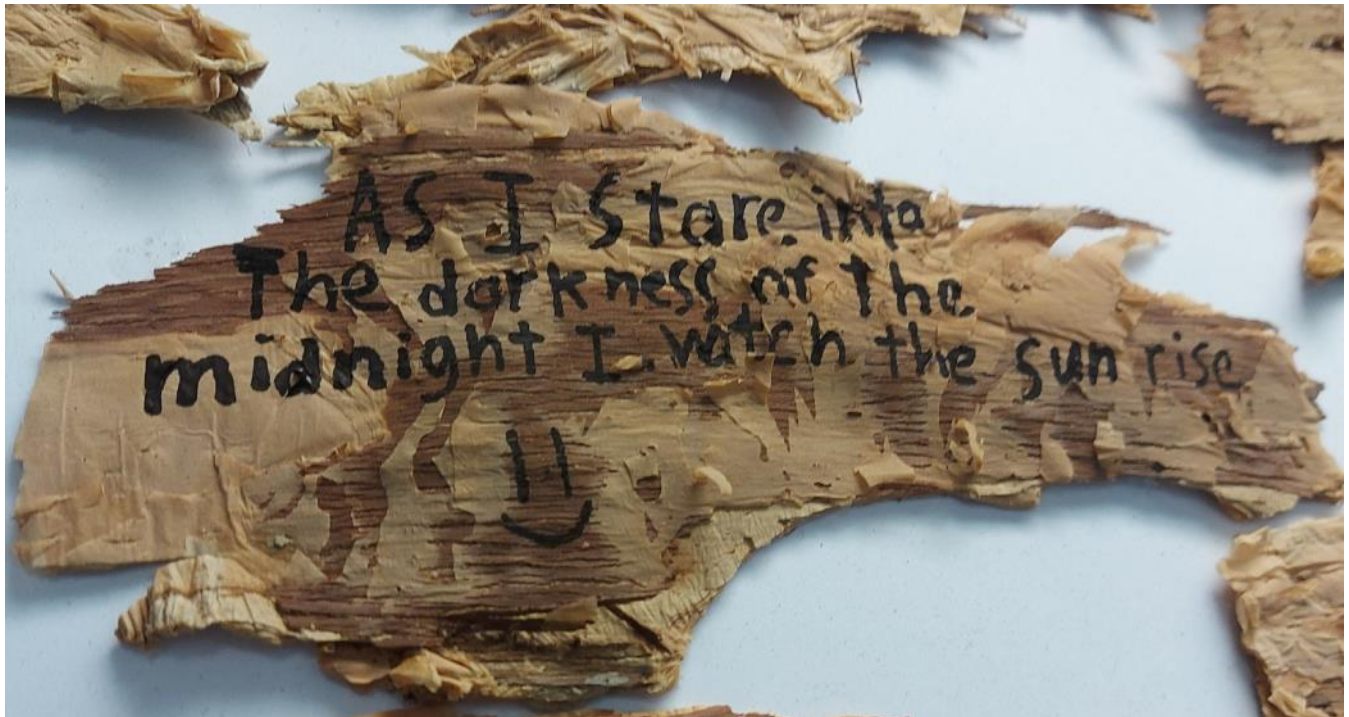 AS I Stare into
The darkness of the
midnight I watch the sun rise